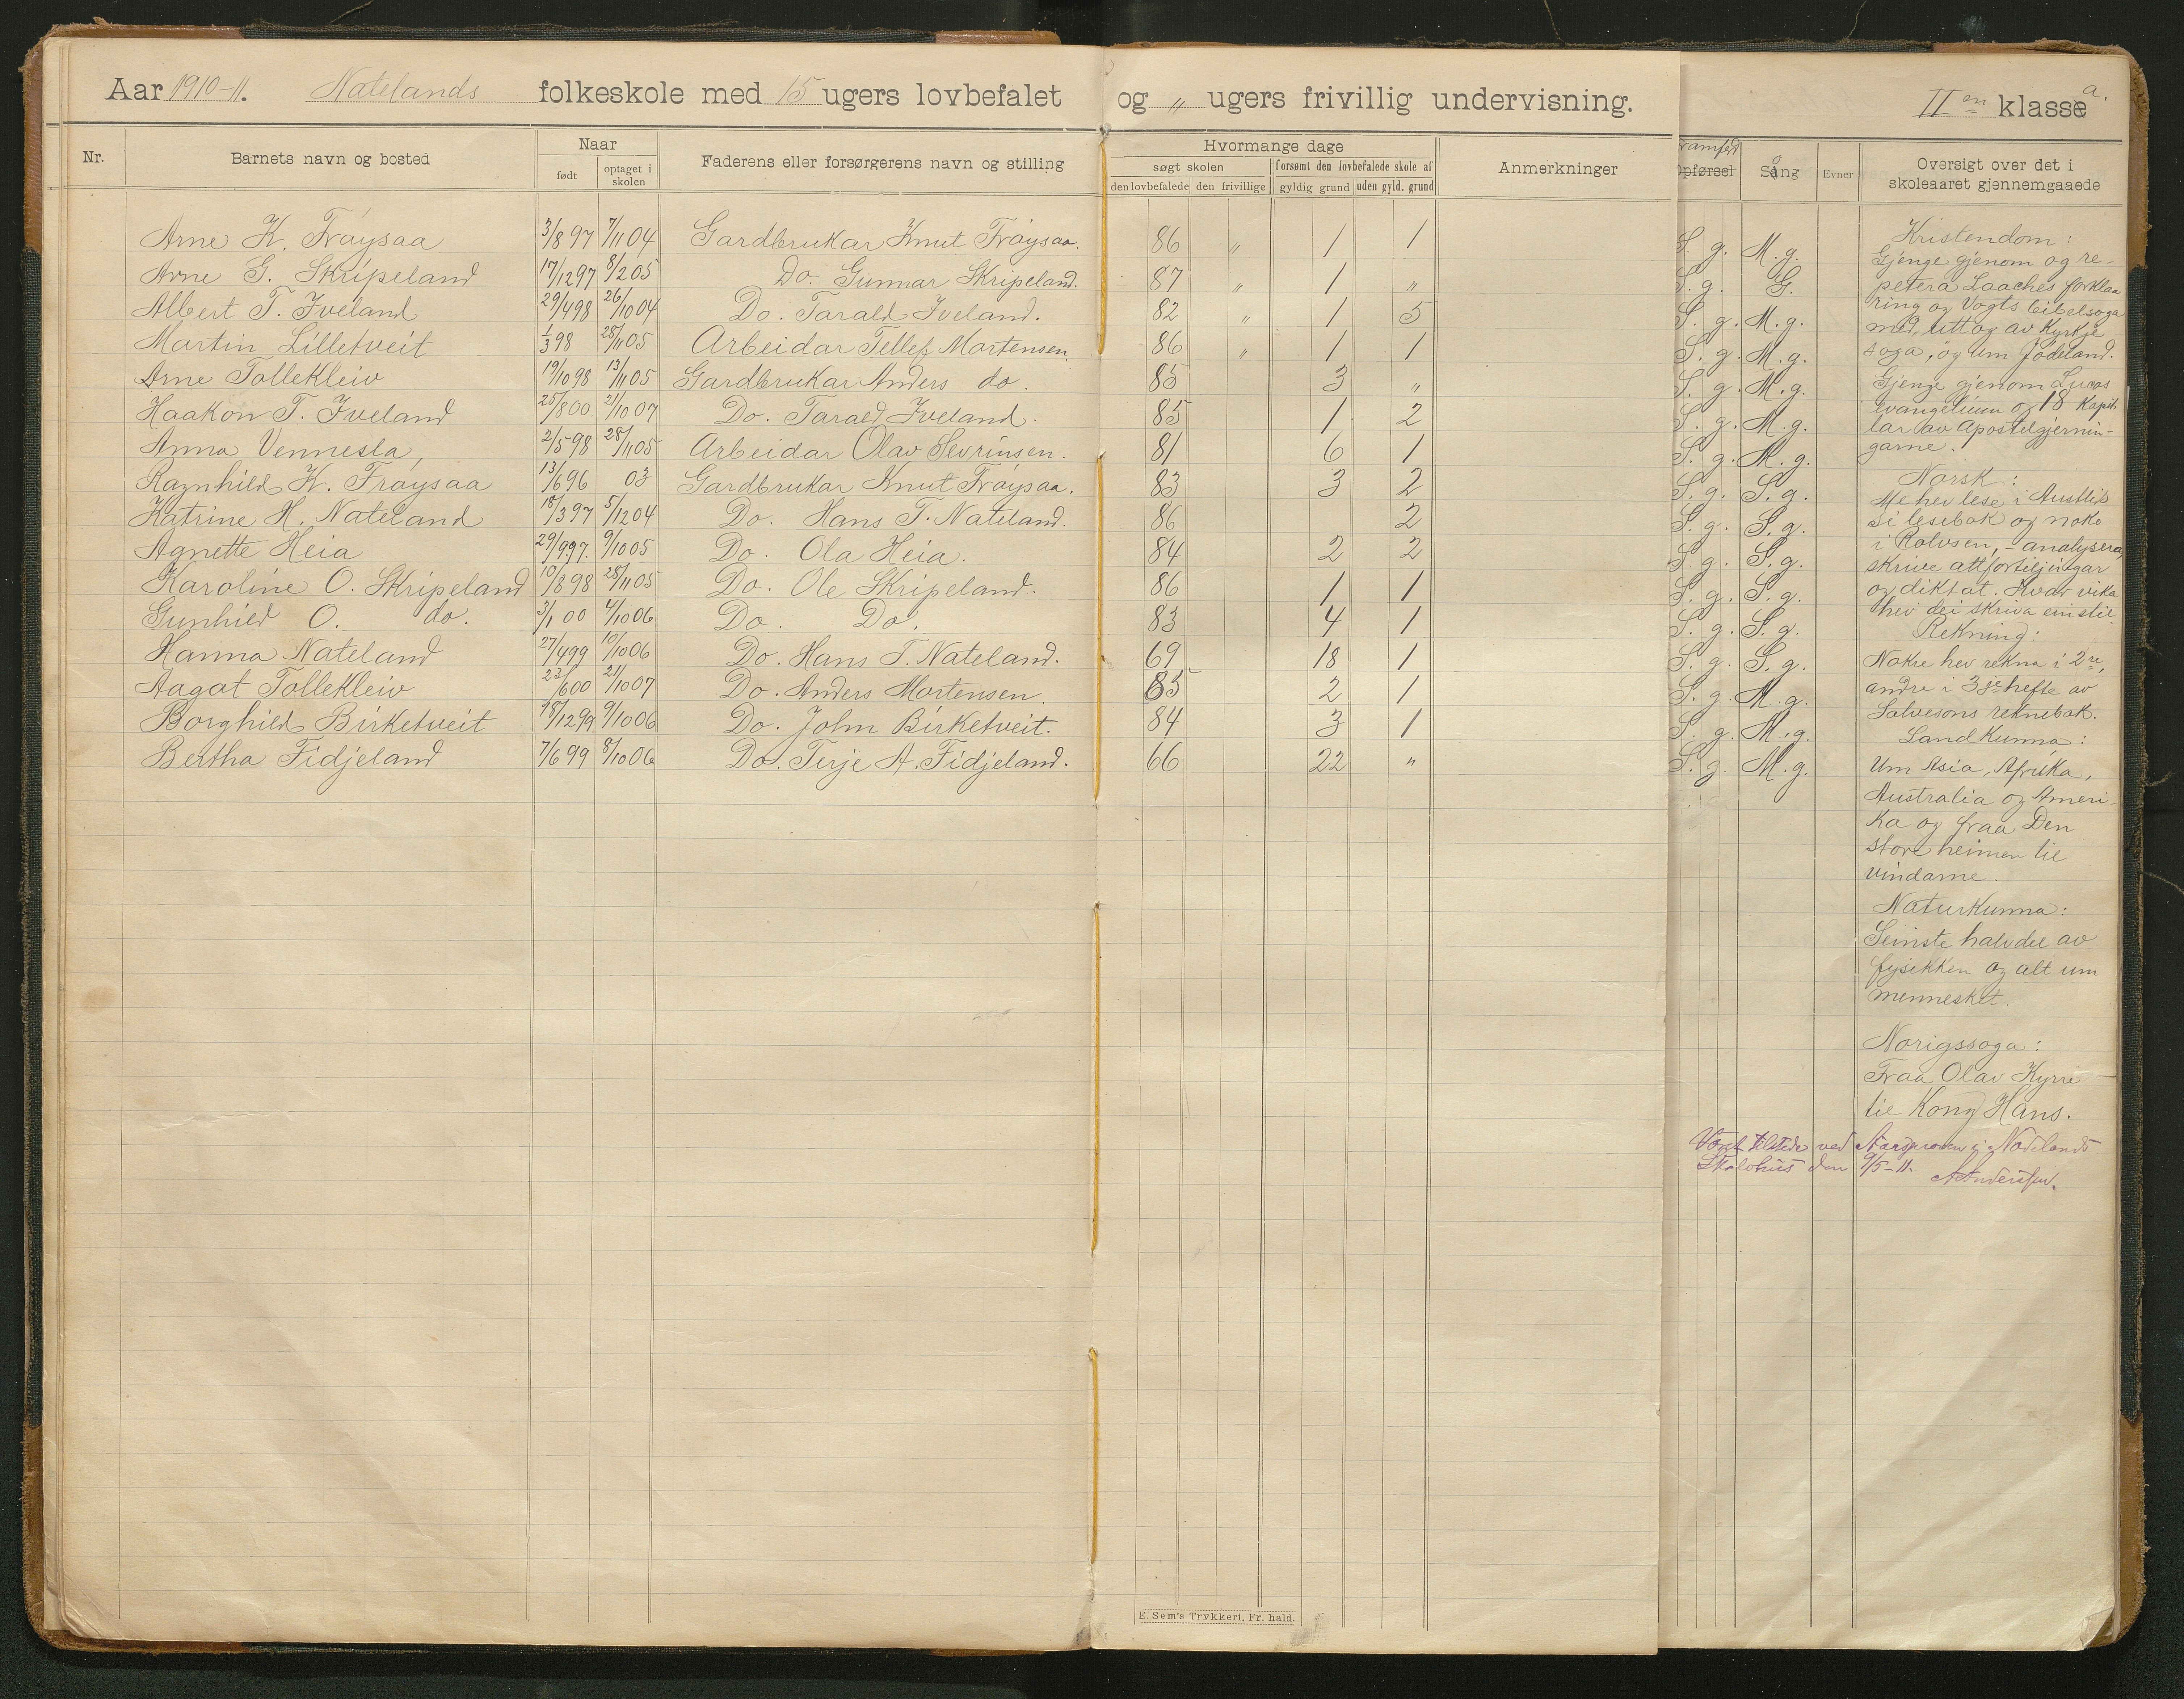 Aar 1910-11. Natelands folkeskole med 15 ugers lovbefalet og " ugers frivillig undervisning. II en klasse a.
Nr. Barnets navn og bosted Naar født optaget i skolen Faderens eller forsørgerens navn og stilling Hvormange dage søgt skolen den lovbefalede den frivillige forsømt den lovbefalede skole af gyldig grund uden gyld. grund Anmerkninger Opførsel Sång Evner Oversigt over det i skoleaaret gjennemgaaede
Arne K. Frøysaa 3/8 97 7/11 04 Gardbrukar Knut Frøysaa. 86 " 1 1 S. g. M. g.
Arne G. Skripeland 17/12 97 8/2 05 Do. Gunnar Skripeland. 87 " 1 " S. g. G.
Albert T. Iveland 29/4 98 26/10 04 Do. Tarald Iveland. 82 " 1 5 S. g. M. g.
Martin Lilletveit 1/3 98 28/11 05 Arbeidar Tellef Mortensen. 86 " 1 1 S. g. M. g.
Arne Tollekleiv 19/10 98 13/11 05 Gardbrukar Anders do. 85 3 " S. g. M. g.
Haakon T. Iveland 25/8 00 21/10 07 Do. Tarald Iveland. 85 1 2 S. g. M. g.
Anna Vennesla, 2/5 98 28/11 05 Arbeidar Olav Sevrinsen. 81 6 1 S. g. M. g.
Ragnhild K. Frøysaa 13/6 96 03 Gardbrukar Knut Frøysaa. 83 3 2 S. g. S. g.
Katrine H. Nateland 18/3 97 5/12 04 Do. Hans T. Nateland. 86 2 S. g. S. g.
Agnette Heia 29/9 97. 9/10 05 Do. Ola Heia. 84 2 2 S. g. S. g.
Karoline O. Skripeland 10/8 98 28/11 05 Do. Ole Skripeland. 86 1 1 S. g. S. g.
Gunhild O. do. 3/1 00 4/10 06 Do. Do. 83 4 1 S. g. S. g.
Hanna Nateland 27/4 99 10/10 06 Do. Hans T. Nateland. 69 18 1 S. g. S. g.
Aagot Tollekleiv 23/6 00 21/10 07 Do. Anders Mortensen. 85 2 1 S. g. M. g.
Borghild Birketveit 18/12 99 9/10 06 Do. John Birketveit. 84 3 1 S. g. M. g.
Bertha Fidjeland 7/6 99 8/10 06 Do. Terje A. Fidjeland. 66 22 " S. g. M. g.
Kristendom:
Gjenge gjenom og re-
petera Laaches forklaa
ring og Vogts bibelsoga
med litt og av Kyrkje
soga, og um Jødeland.
Gjenge gjenom Lucas
evangelium og 18 Kapit
lar av Apostelgjernin-
garne.
Norsk:
Me hev lese i Austlid
si lesebok og noko
i Rolvsen, - analysera,
skrive attforteljingar
og diktat. Kvar vika
hev dei skriva ein stil.
Rekning:
Nokre hev rekna i 2re,
andre i 3je hefte av
Salvesons reknebok.
Landkunna:
Um Asia, Afrika,
Australia og Ameri-
ka og fraa Den
store heimen til
vindarne.
Naturkunna:
Seinste halvdel av
fysikken og alt um
mennesket.
Norigssoga:
Fraa Olav Kyrre
til Kong Hans.
Været tilstede ved Aarsprøven i Nodelands
Skolehus den 9/5-11.
E. Sem's Trykkeri, Fr. hald.